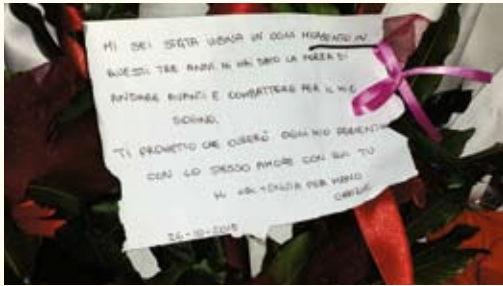 MI SEI STATA VICINA IN OGNI MOMENTO IN
QUESTI TRE ANNI. MI HAI DATO LA FORZA DI
ANDARE AVANTI E COMBATTERE PER IL MIO
SOGNO.
TI PROMETTO CHE CURERÒ OGNI MIO PAZIENTE
CON LO STESSO AMORE CON CUI TU
MI HAI TENUTA PER MANO
GRAZIE